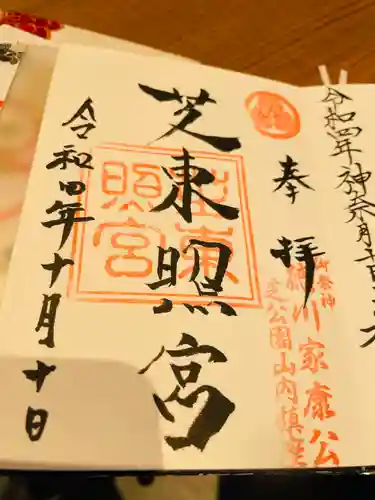 令和四年神奈月
奉拝
御祭神
徳川家康公
芝公園山内鎮座
芝東照宮
芝東照宮
令和四年十月十日